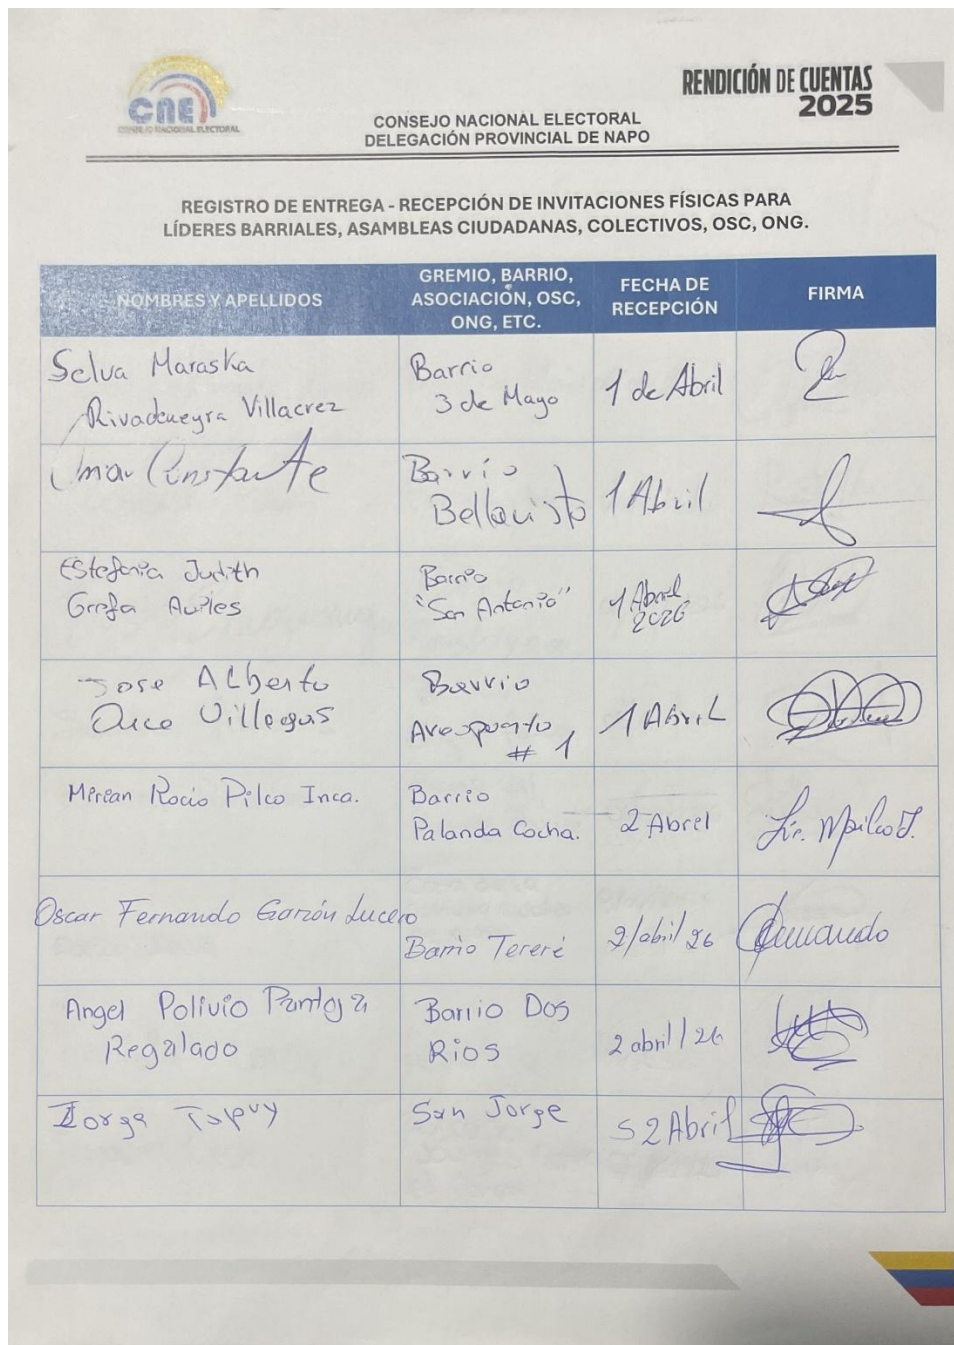 CNE
CONSEJO NACIONAL ELECTORAL
RENDICIÓN DE CUENTAS
2025
CONSEJO NACIONAL ELECTORAL
DELEGACIÓN PROVINCIAL DE NAPO
REGISTRO DE ENTREGA - RECEPCIÓN DE INVITACIONES FÍSICAS PARA
LÍDERES BARRIALES, ASAMBLEAS CIUDADANAS, COLECTIVOS, OSC, ONG.
NOMBRES Y APELLIDOS
GREMIO, BARRIO,
ASOCIACIÓN, OSC,
ONG, ETC.
FECHA DE
RECEPCIÓN
FIRMA
Selva Maraska
Rivadeneyra Villacrez
Barrio
3 de Mayo
1 de Abril
Omar Constante
Barrio
Bellavista
1 Abril
Estefania Judith
Grefa Aviles
Barrio
"San Antonio"
1 Abril
2026
Jose ALberto
Villegas
Barrio
# 1
1 Abril
Mirian Rocio Pilco Inca.
Barrio
Palanda Cocha.
2 Abrel
Oscar Fernando Garzón Lucero
Barrio Tereré
2/abril/26
Angel Polivio Pantoja
Regalado
Barrio Dos
Rios
2 abril/26
Tapuy
San Jorge
2 Abril